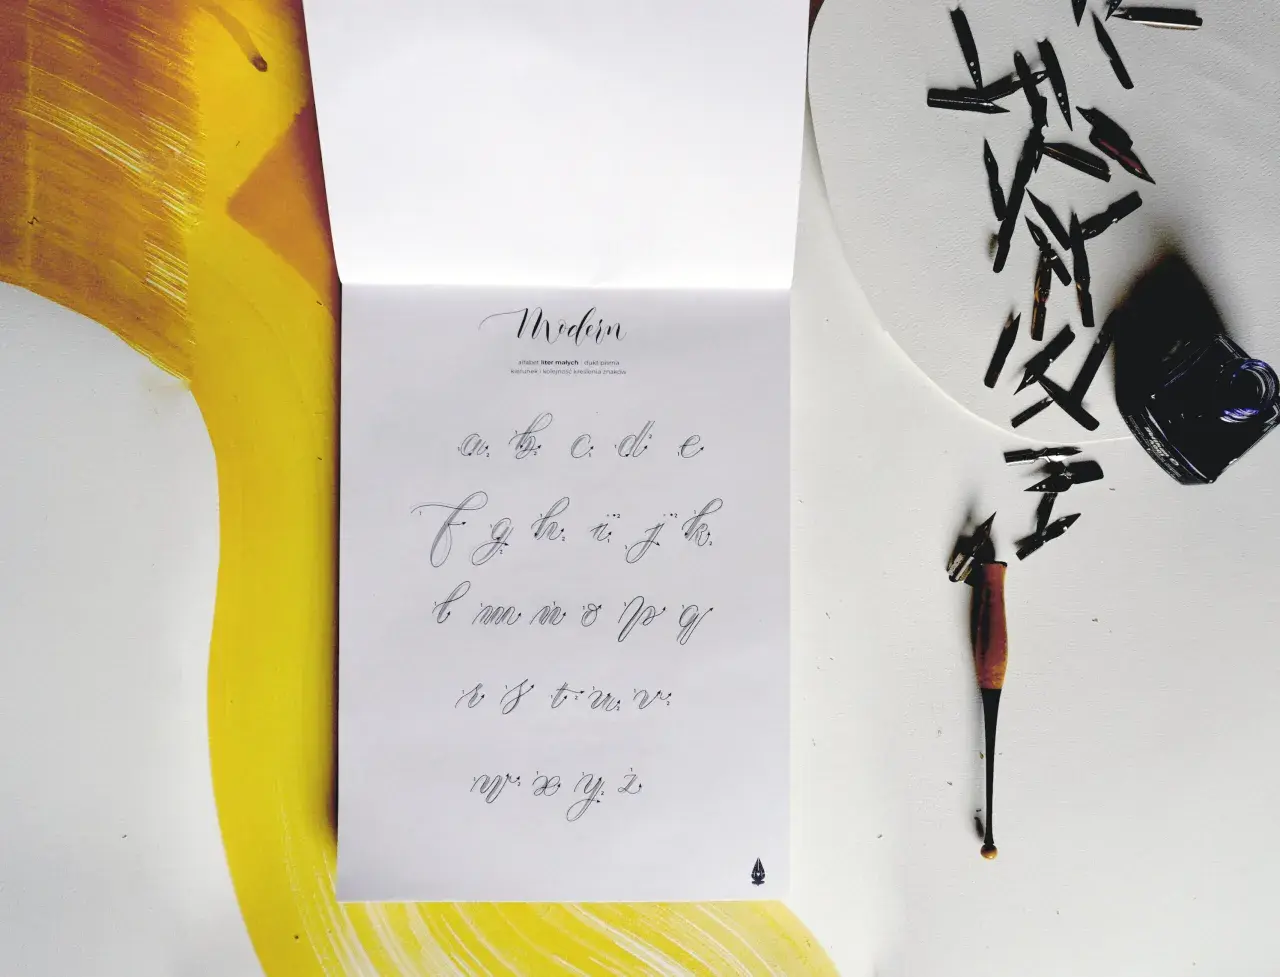 Modern
alfabet liter małych · dukt pisma
kierunek i kolejność kreślenia znaków
a b c d e
f g h i j k
l m n o p q
r s t u v
w x y z